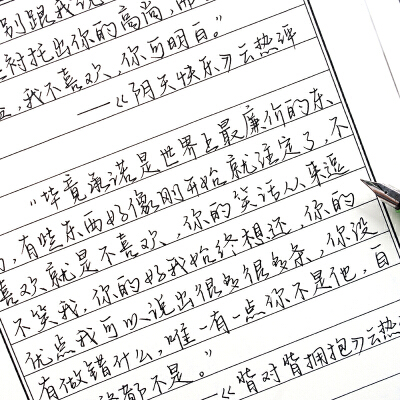 别跟我说
衬托出你的高尚，
，我不喜欢，你可明白。”
——《阴天快乐》云热评
“毕竟承诺是世界上最廉价的东
，有些东西好像刚开始就注定了，不
喜欢就是不喜欢，你的笑话从来逗
不笑我，你的好我始终想还，你的
优点我可以说出很多很多条，你没
有做错什么，唯一有一点你不是他，自
都不是。”
——《背对背拥抱》云热